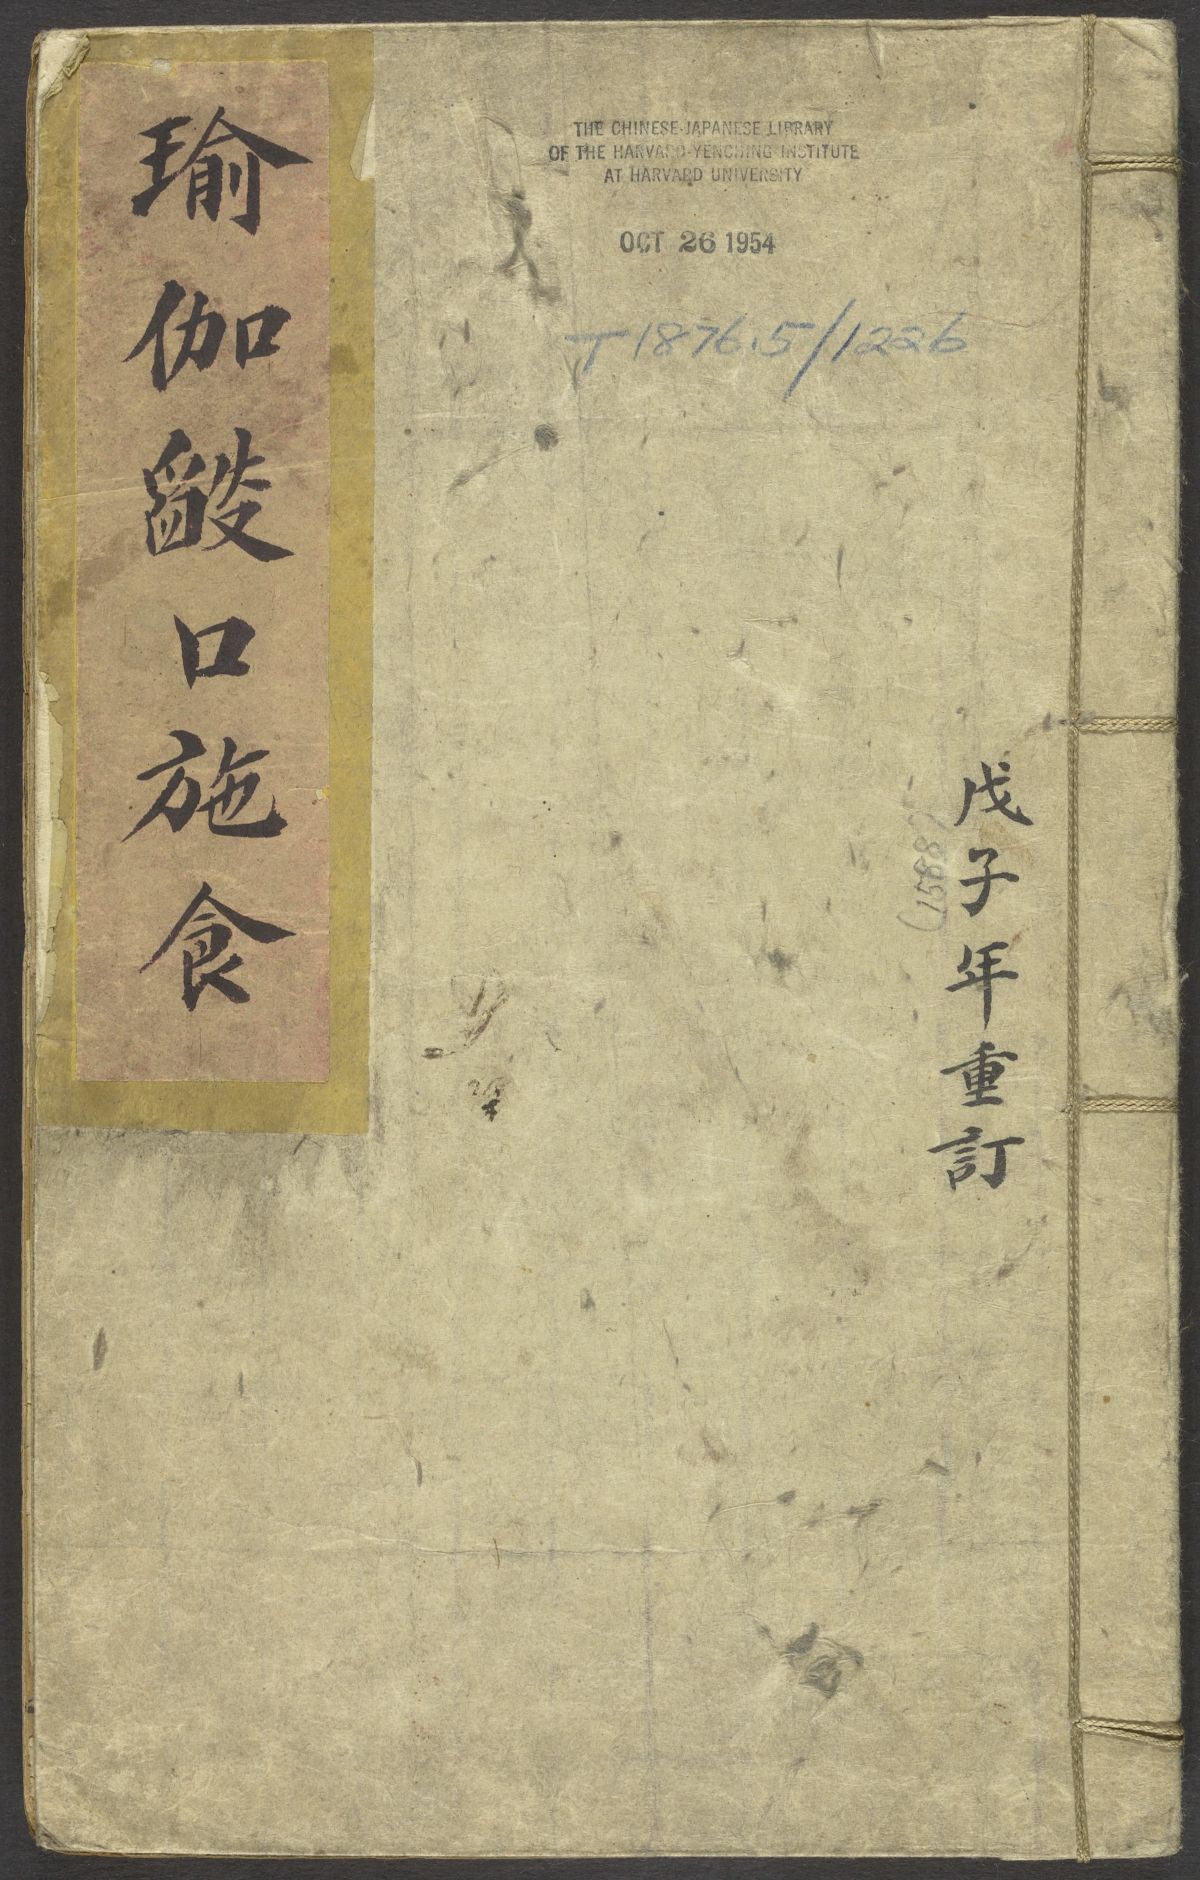 瑜伽燄口施食
THE CHINESE-JAPANESE LIBRARY
OF THE HARVARD-YENCHING INSTITUTE
AT HARVARD UNIVERSITY
OCT 26 1954
T1876.5/1226
戊子年重訂